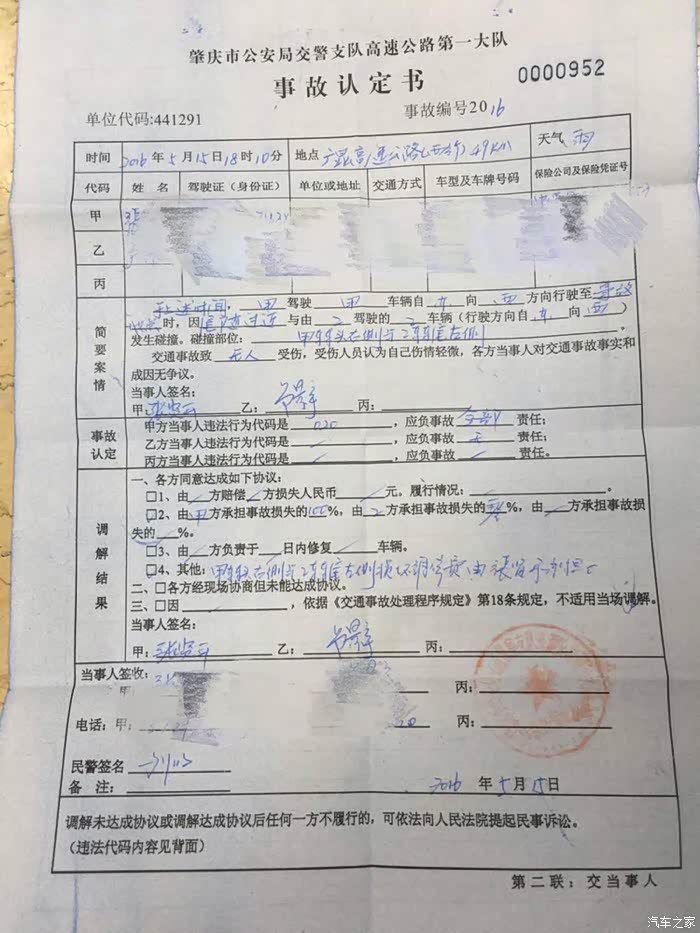 肇庆市公安局交警支队高速公路第一大队
事故认定书
0000952
单位代码:441291
事故编号2016
时间 2016年5月15日18时10分 地点 广昆高速公路(西行) 49KM 天气 雨
代码 姓名 驾驶证(身份证) 单位或地址 交通方式 车型及车牌号码 保险公司及保险凭证号
甲
乙
丙
简要案情
上述时间,甲驾驶甲车辆自东向西方向行驶至事故
地点时,因 与由乙驾驶的乙车辆(行驶方向自东向西)
发生碰撞。碰撞部位: 甲车车头右侧与乙车车尾左侧
交通事故致无人受伤,受伤人员认为自己伤情轻微,各方当事人对交通事故事实和
成因无争议。
当事人签名:
甲: 乙: 丙:
事故认定
甲方当事人违法行为代码是 020 ,应负事故全部责任;
乙方当事人违法行为代码是 / ,应负事故无责任;
丙方当事人违法行为代码是 / ,应负事故 / 责任。
调解结果
一、各方同意达成如下协议:
□1、由/方赔偿/方损失人民币/元。履行情况: /
□2、由甲方承担事故损失的100%,由乙方承担事故损失的零%,由/方承担事故损
失的/%。
□3、由/方负责于/日内修复/车辆。
□4、其他: 甲车车头右侧与乙车车尾左侧损坏
二、□各方经现场协商但未能达成协议。
三、□因 ,依据《交通事故处理程序规定》第18条规定,不适用当场调解。
当事人签名:
甲: 乙: 丙:
当事人签收:
甲 丙:
电话:甲: 丙:
民警签名
备 注: 2016年5月15日
调解未达成协议或调解达成协议后任何一方不履行的,可依法向人民法院提起民事诉讼。
(违法代码内容见背面)
第二联:交当事人
汽车之家